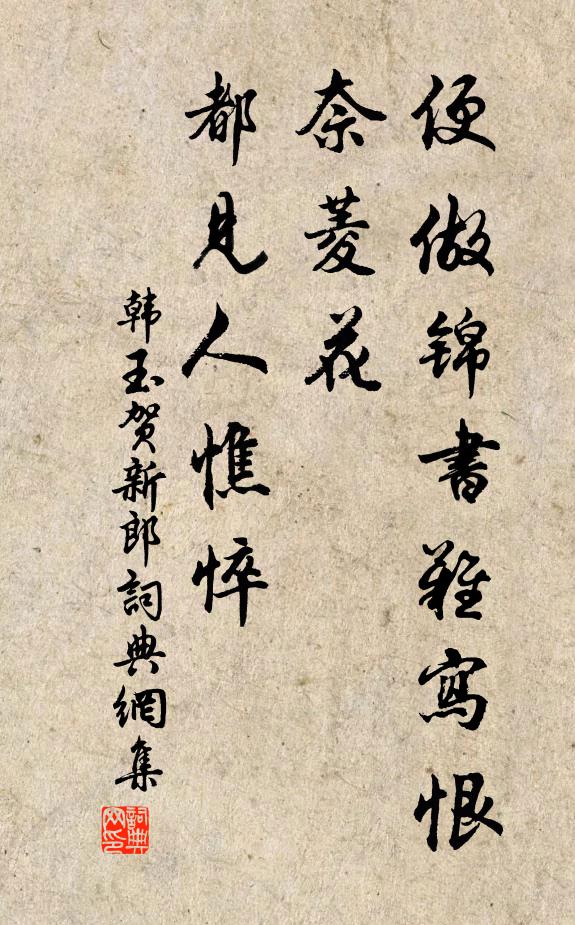 便做锦書難寫恨
奈菱花
都見人憔悴
韩玉贺新郎詞典網集
詞典
网印